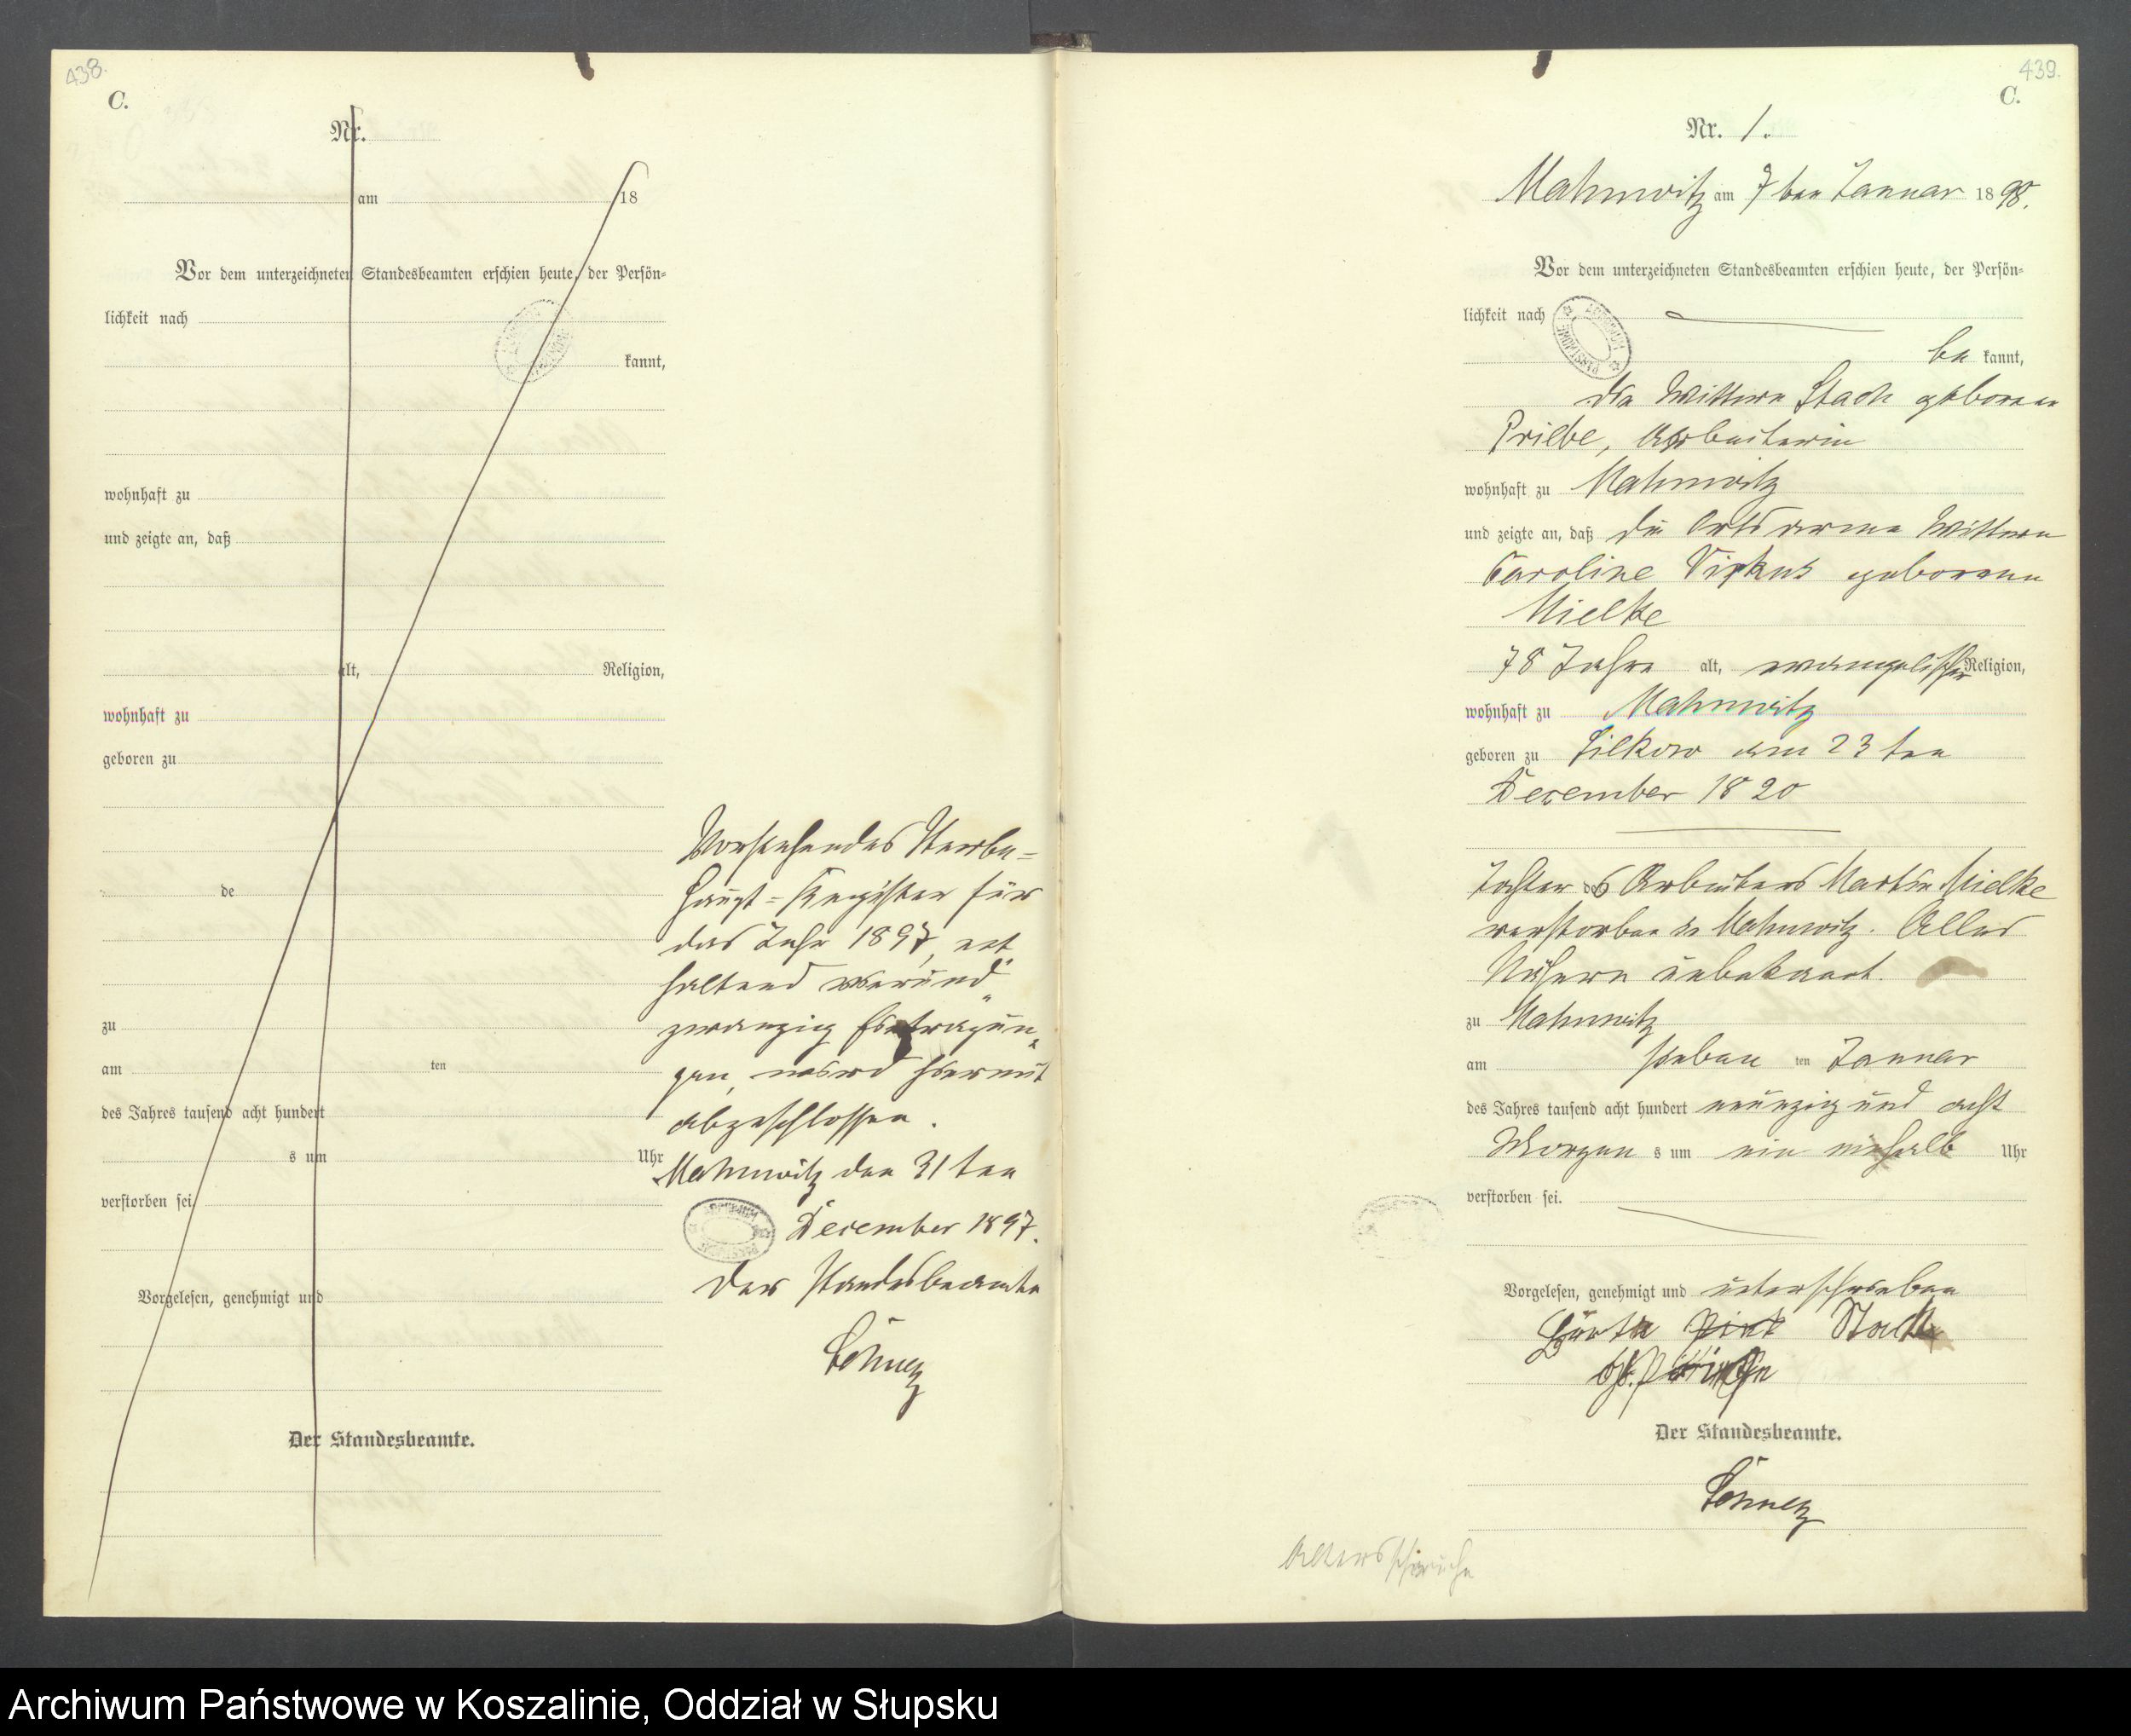 438.
C.
Nr.
am 18
Vor dem unterzeichneten Standesbeamten erschien heute, der Persön-
lichkeit nach
kannt,
wohnhaft zu
und zeigte an, daß
alt, Religion,
wohnhaft zu
geboren zu
de
zu
am ten
des Jahres tausend acht hundert
s um Uhr
verstorben sei
Vorgelesen, genehmigt und
Der Standesbeamte.
Vorstehendes Sterbe-
Haupt-Register für
das Jahr 1897, ent
haltend vierund
zwanzig Eintragun
gen, wird hiermit
abgeschlossen.
Mahnwitz den 31ten
December 1897.
Der Standesbeamte
439.
C.
Nr. 1.
Mahnwitz am 7ten Januar 1898.
Vor dem unterzeichneten Standesbeamten erschien heute, der Persön-
lichkeit nach
be kannt,
die Wittwe Stach geborene
Priebe, Arbeiterin
wohnhaft zu Mahnwitz
und zeigte an, daß die Ortsarme Wittwe
Caroline Virkus geborene
Mielke
78 Jahre alt, evangelischer Religion,
wohnhaft zu Mahnwitz
geboren zu Silkow am 23ten
December 1820
Tochter des Arbeiters Martin Mielke
verstorben in Mahnwitz. Alles
Nähere unbekannt.
zu Mahnwitz
am sieben ten Januar
des Jahres tausend acht hundert neunzig und acht
Morgen s um ein einhalb Uhr
verstorben sei.
Vorgelesen, genehmigt und unterschrieben
Stach
Der Standesbeamte.
Altersschwäche
Archiwum Państwowe w Koszalinie, Oddział w Słupsku